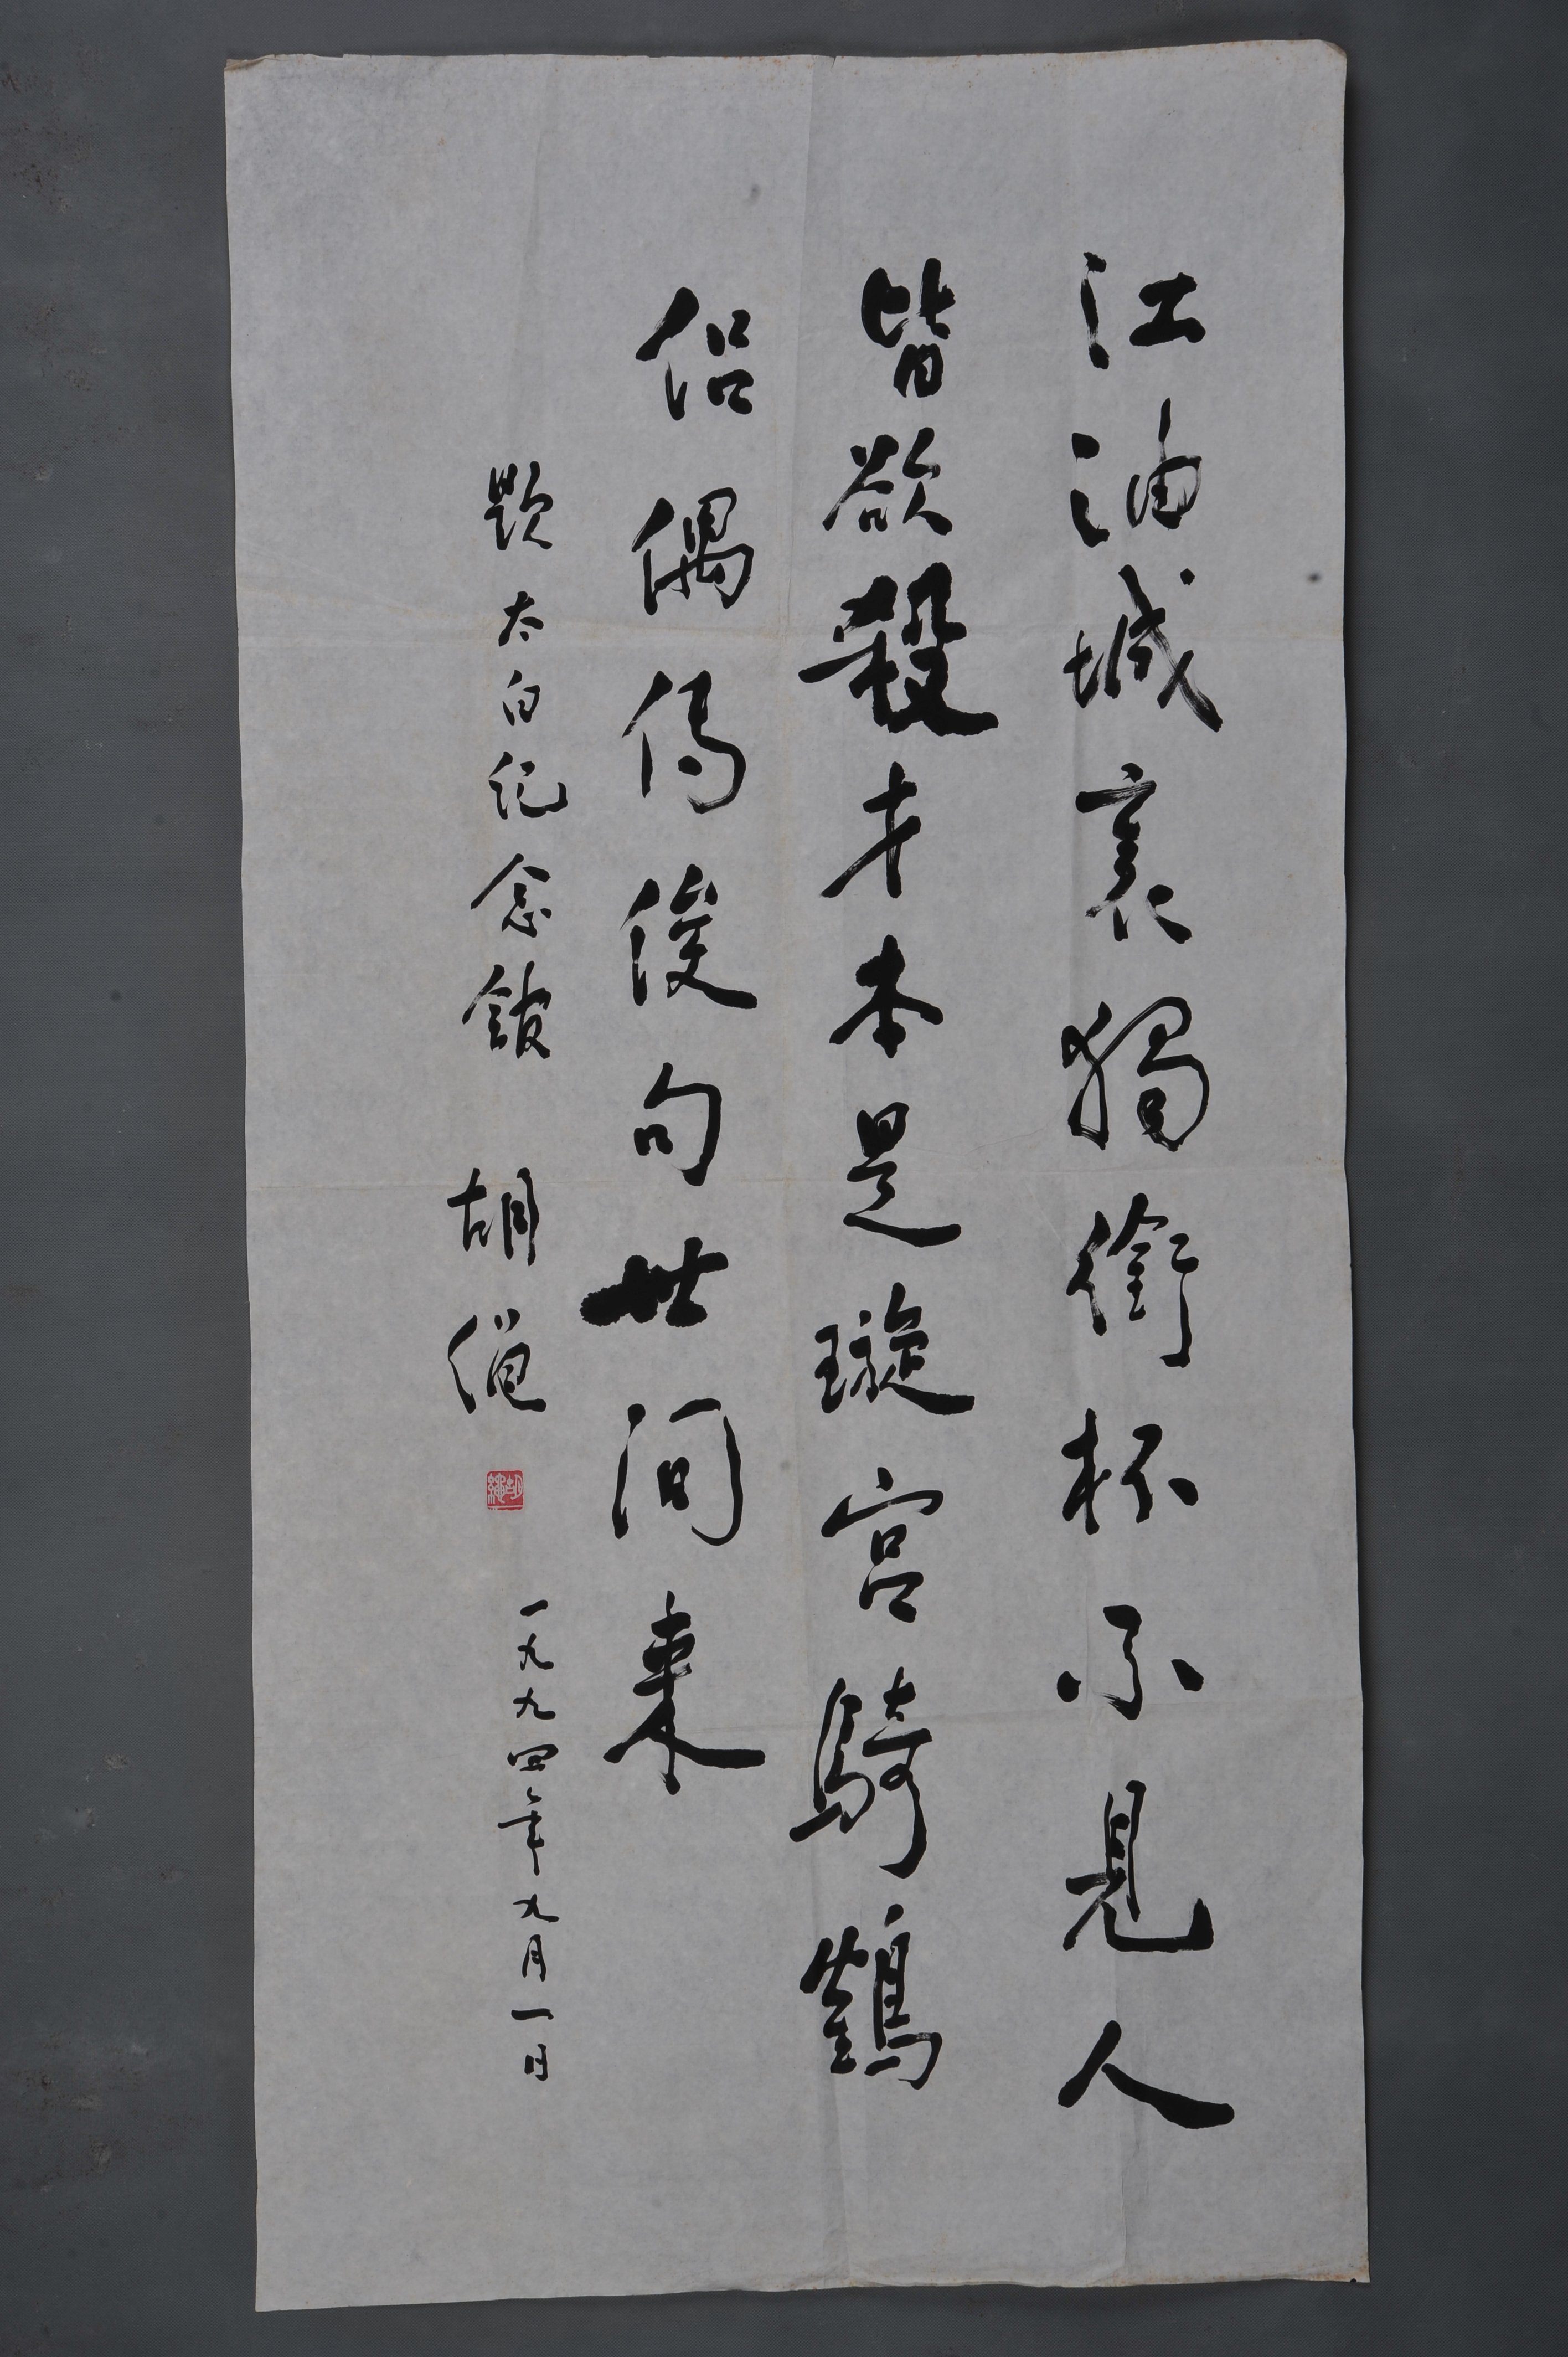 江油城裏獨銜杯不見人
皆欲殺才本是璇宫騎鶴
侣偶傳俊句世间來
题太白纪念馆 胡绳
胡繩
一九九四年九月一日